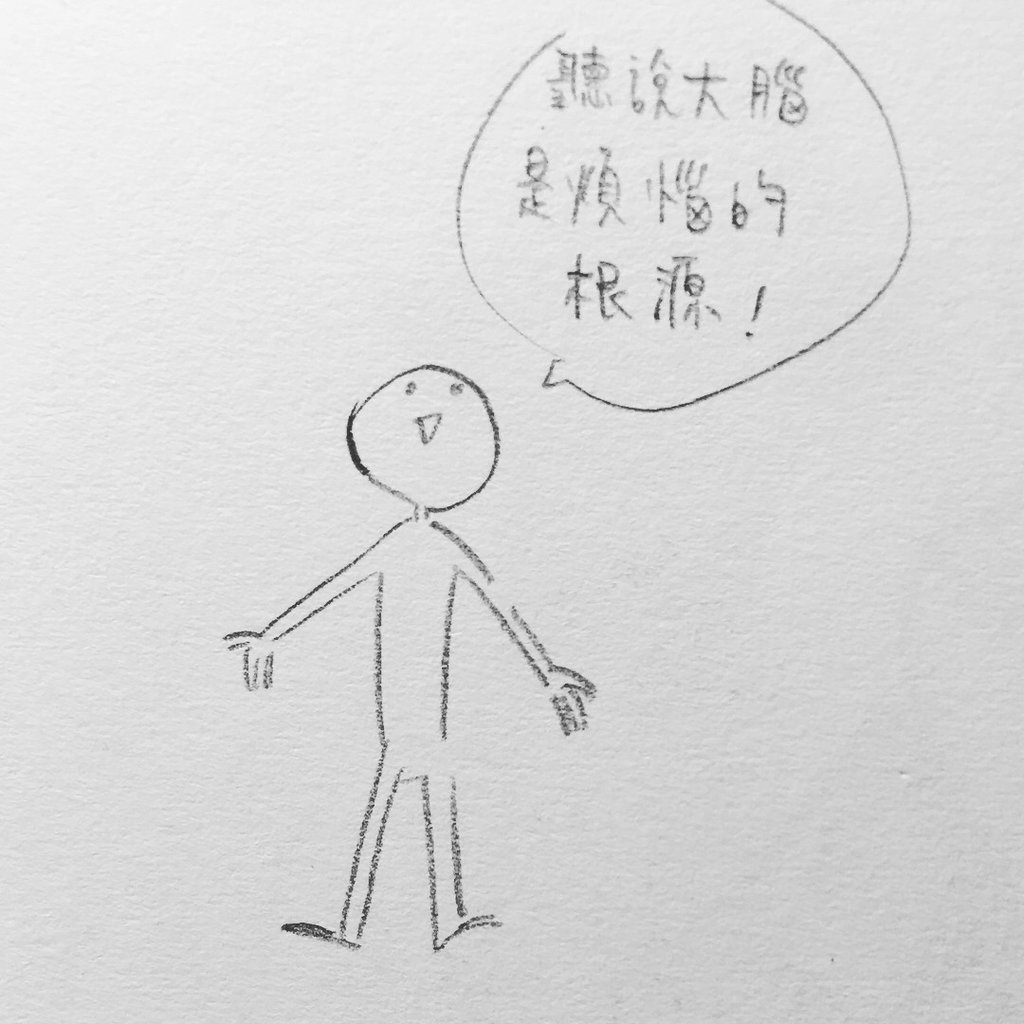 聽說大腦
是煩惱的
根源！